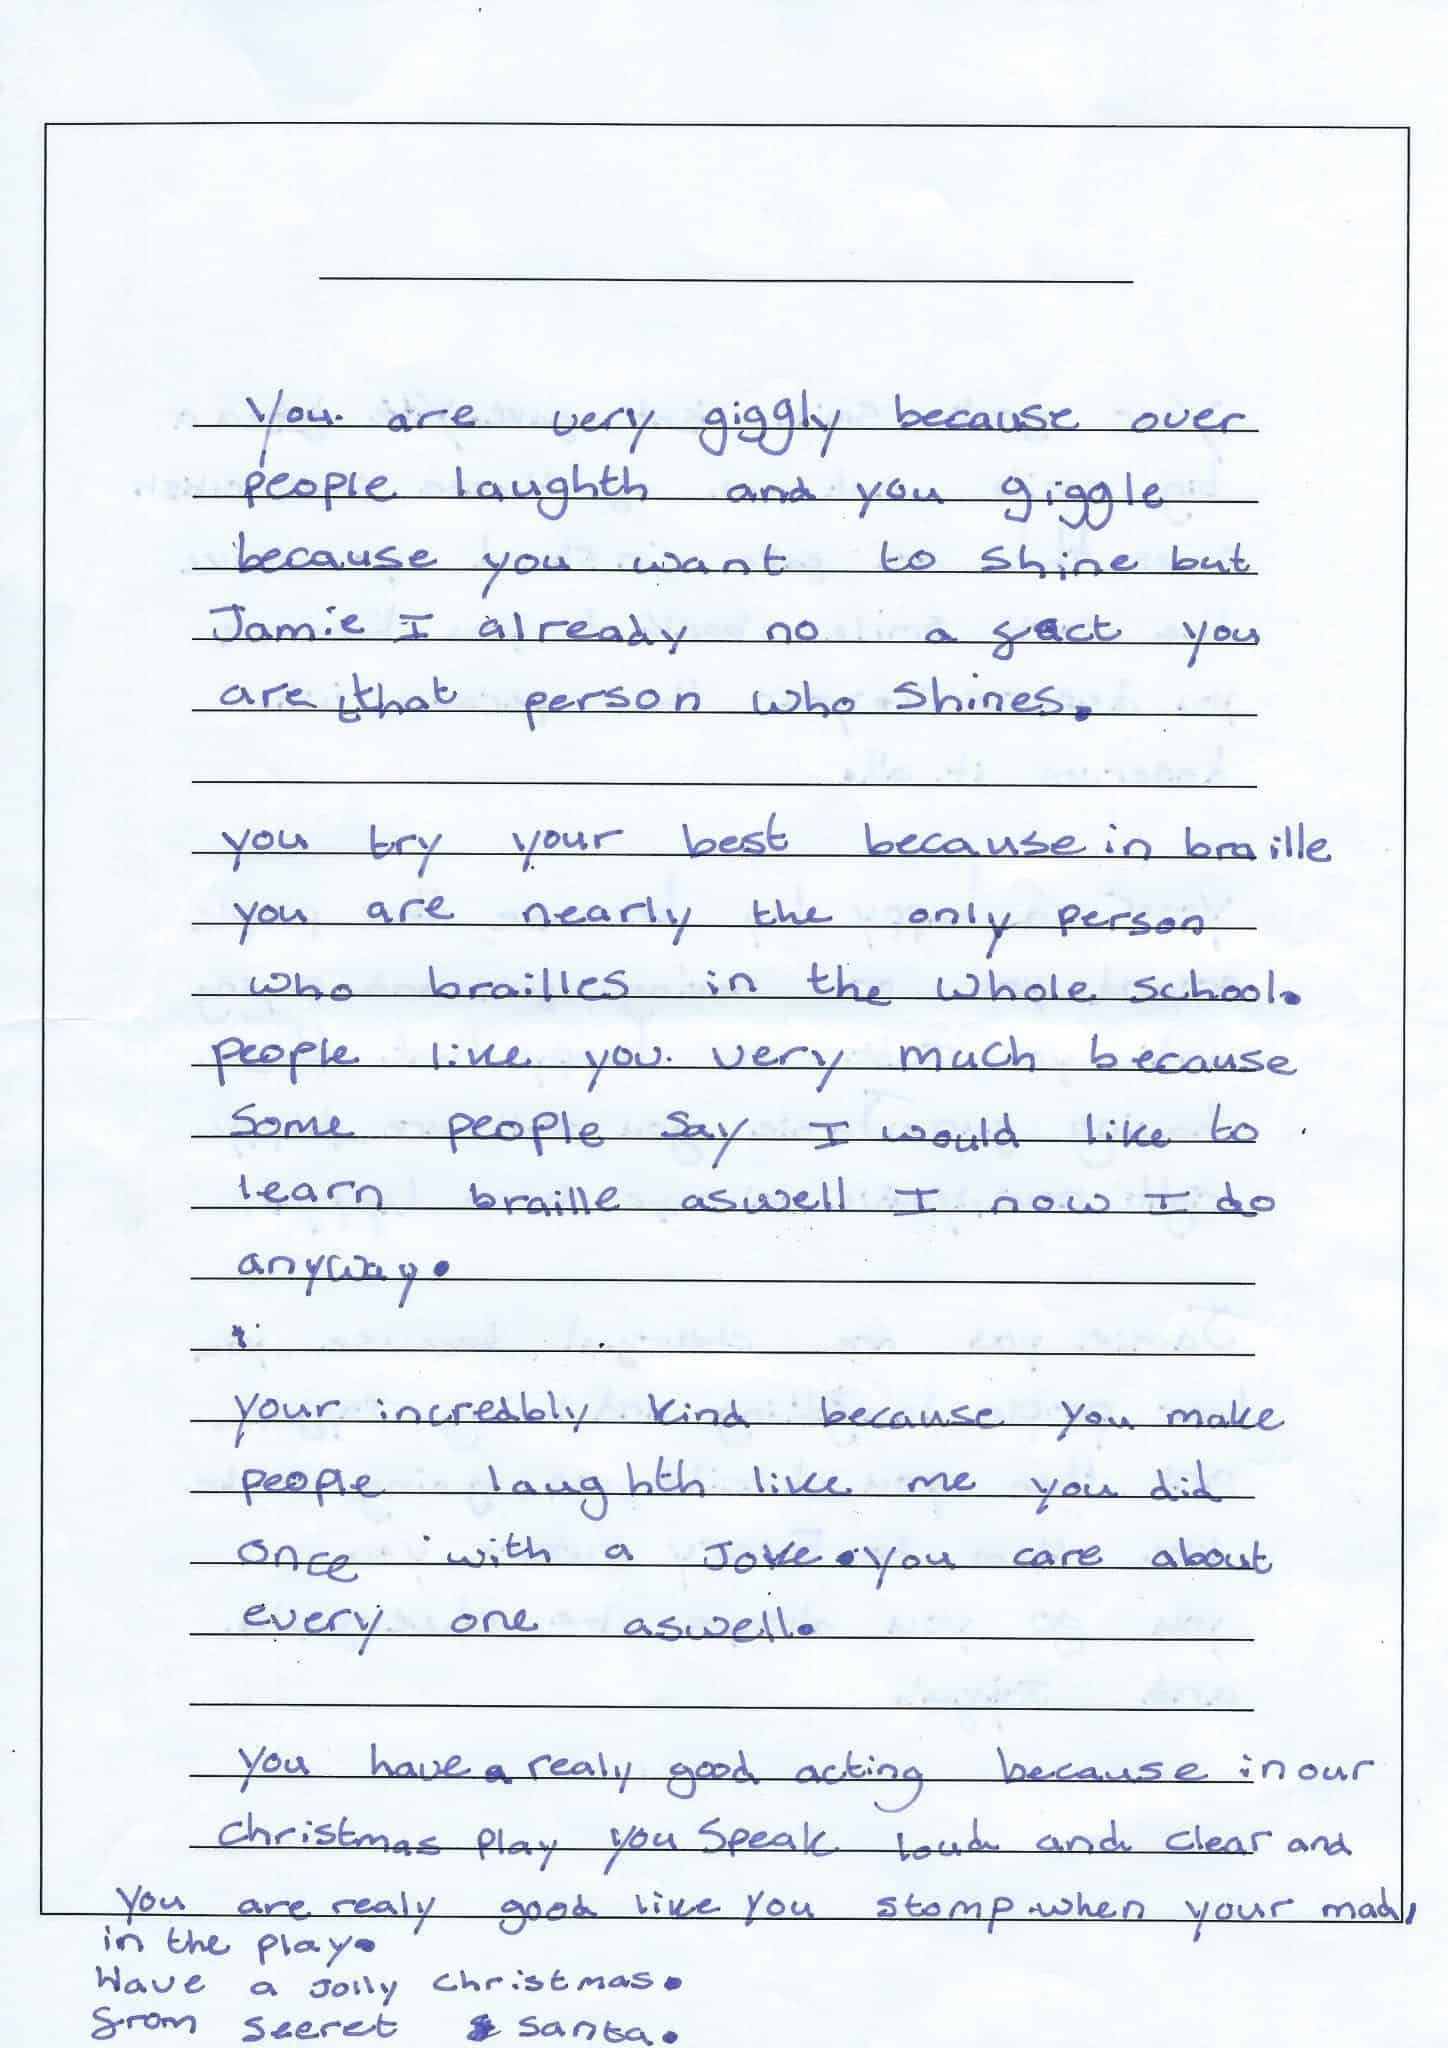 You are very giggly because over
people laughth and you giggle
because you want to shine but
Jamie I already no a fact you
are that person who shines.
you try your best because in braille
you are nearly the only person
who brailles in the whole school.
people like you very much because
Some people say I would like to
learn braille aswell I now I do
anyway.
your incredbly kind because you make
people laughth like me you did
once with a Joke. you care about
every one aswell.
You have a realy good acting because in our
christmas play you Speak loud and clear and
you are realy good like you stomp when your mad,
in the play.
Have a jolly christmas.
from secret santa.